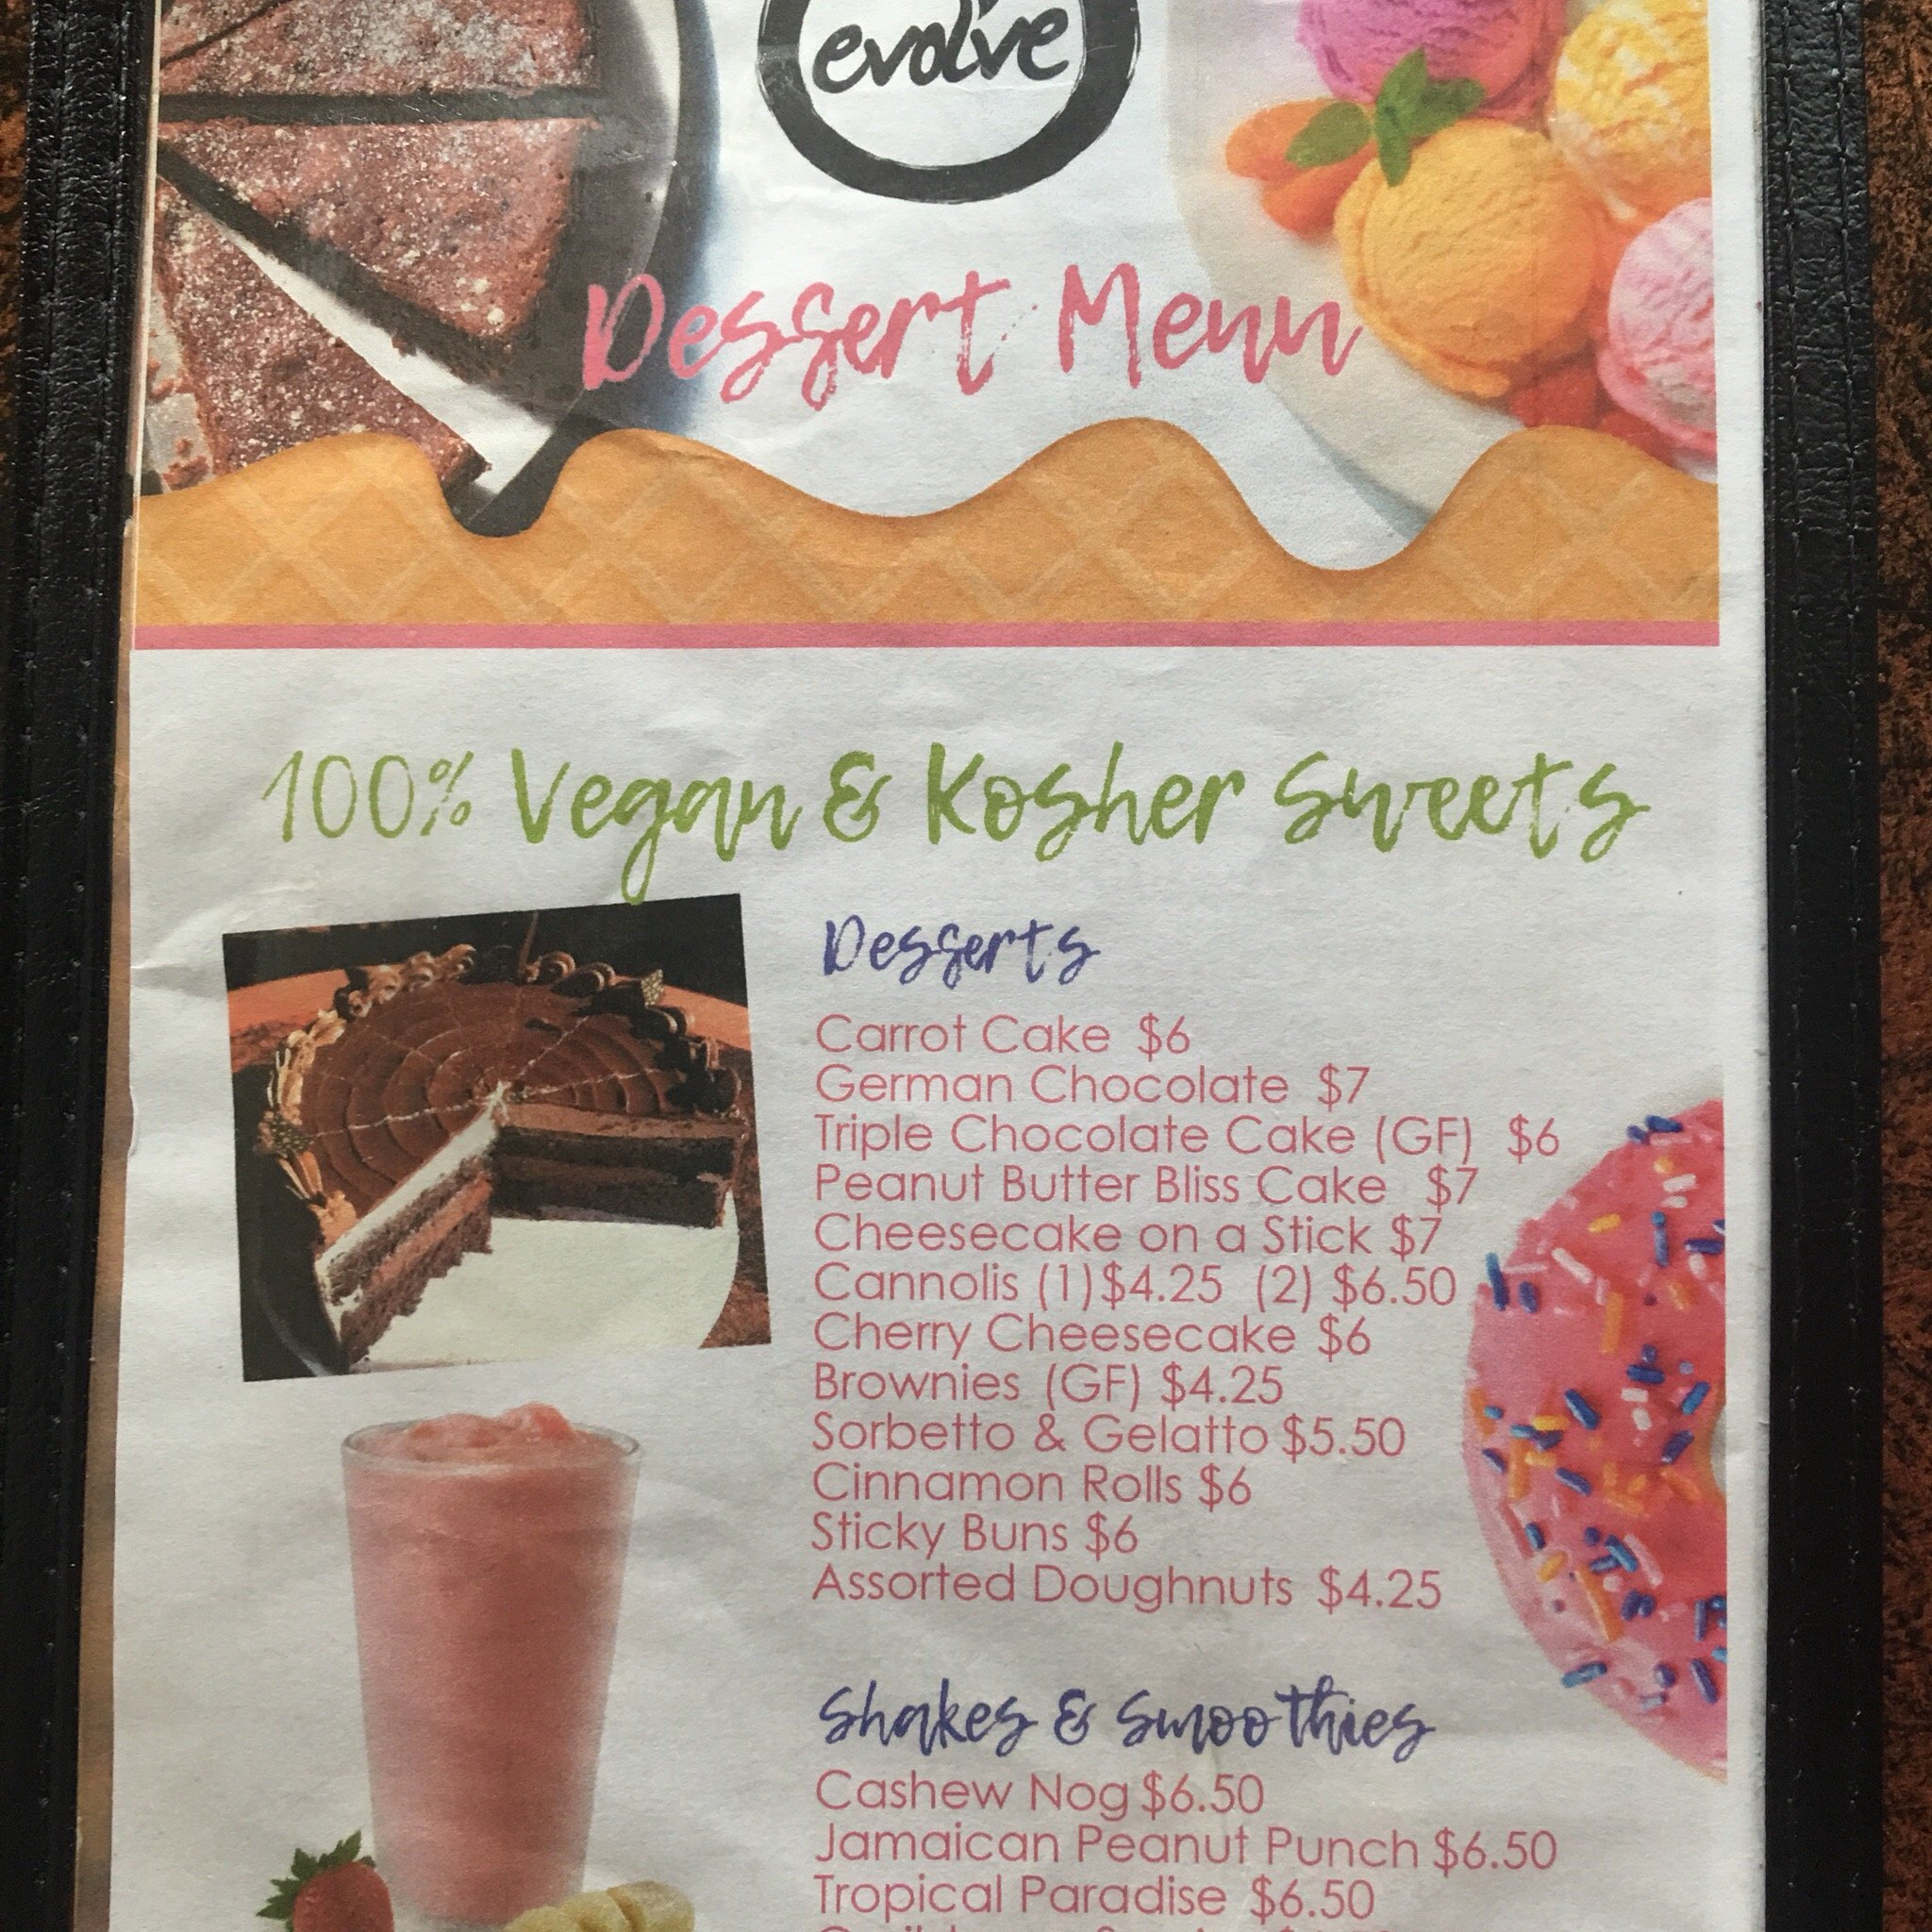 evolve
Dessert Menu
100% Vegan & Kosher Sweets
Desserts
Carrot Cake $6
German Chocolate $7
Triple Chocolate Cake (GF) $6
Peanut Butter Bliss Cake $7
Cheesecake on a Stick $7
Cannolis (1)$4.25 (2) $6.50
Cherry Cheesecake $6
Brownies (GF) $4.25
Sorbetto & Gelatto $5.50
Cinnamon Rolls $6
Sticky Buns $6
Assorted Doughnuts $4.25
Shakes & Smoothies
Cashew Nog $6.50
Jamaican Peanut Punch $6.50
Tropical Paradise $6.50